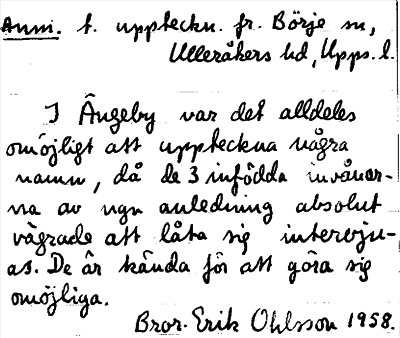 Anm. t. uppteckn. fr. Börje sn,
Ulleråkers hd, Upps. l.
I Ängeby var det alldeles
omöjligt att uppteckna några
namn, då de 3 infödda invånar-
na av ngn anledning absolut
vägrade att låta sig intervju-
as. De är kända för att göra sig
omöjliga.
Bror-Erik Ohlsson 1958.